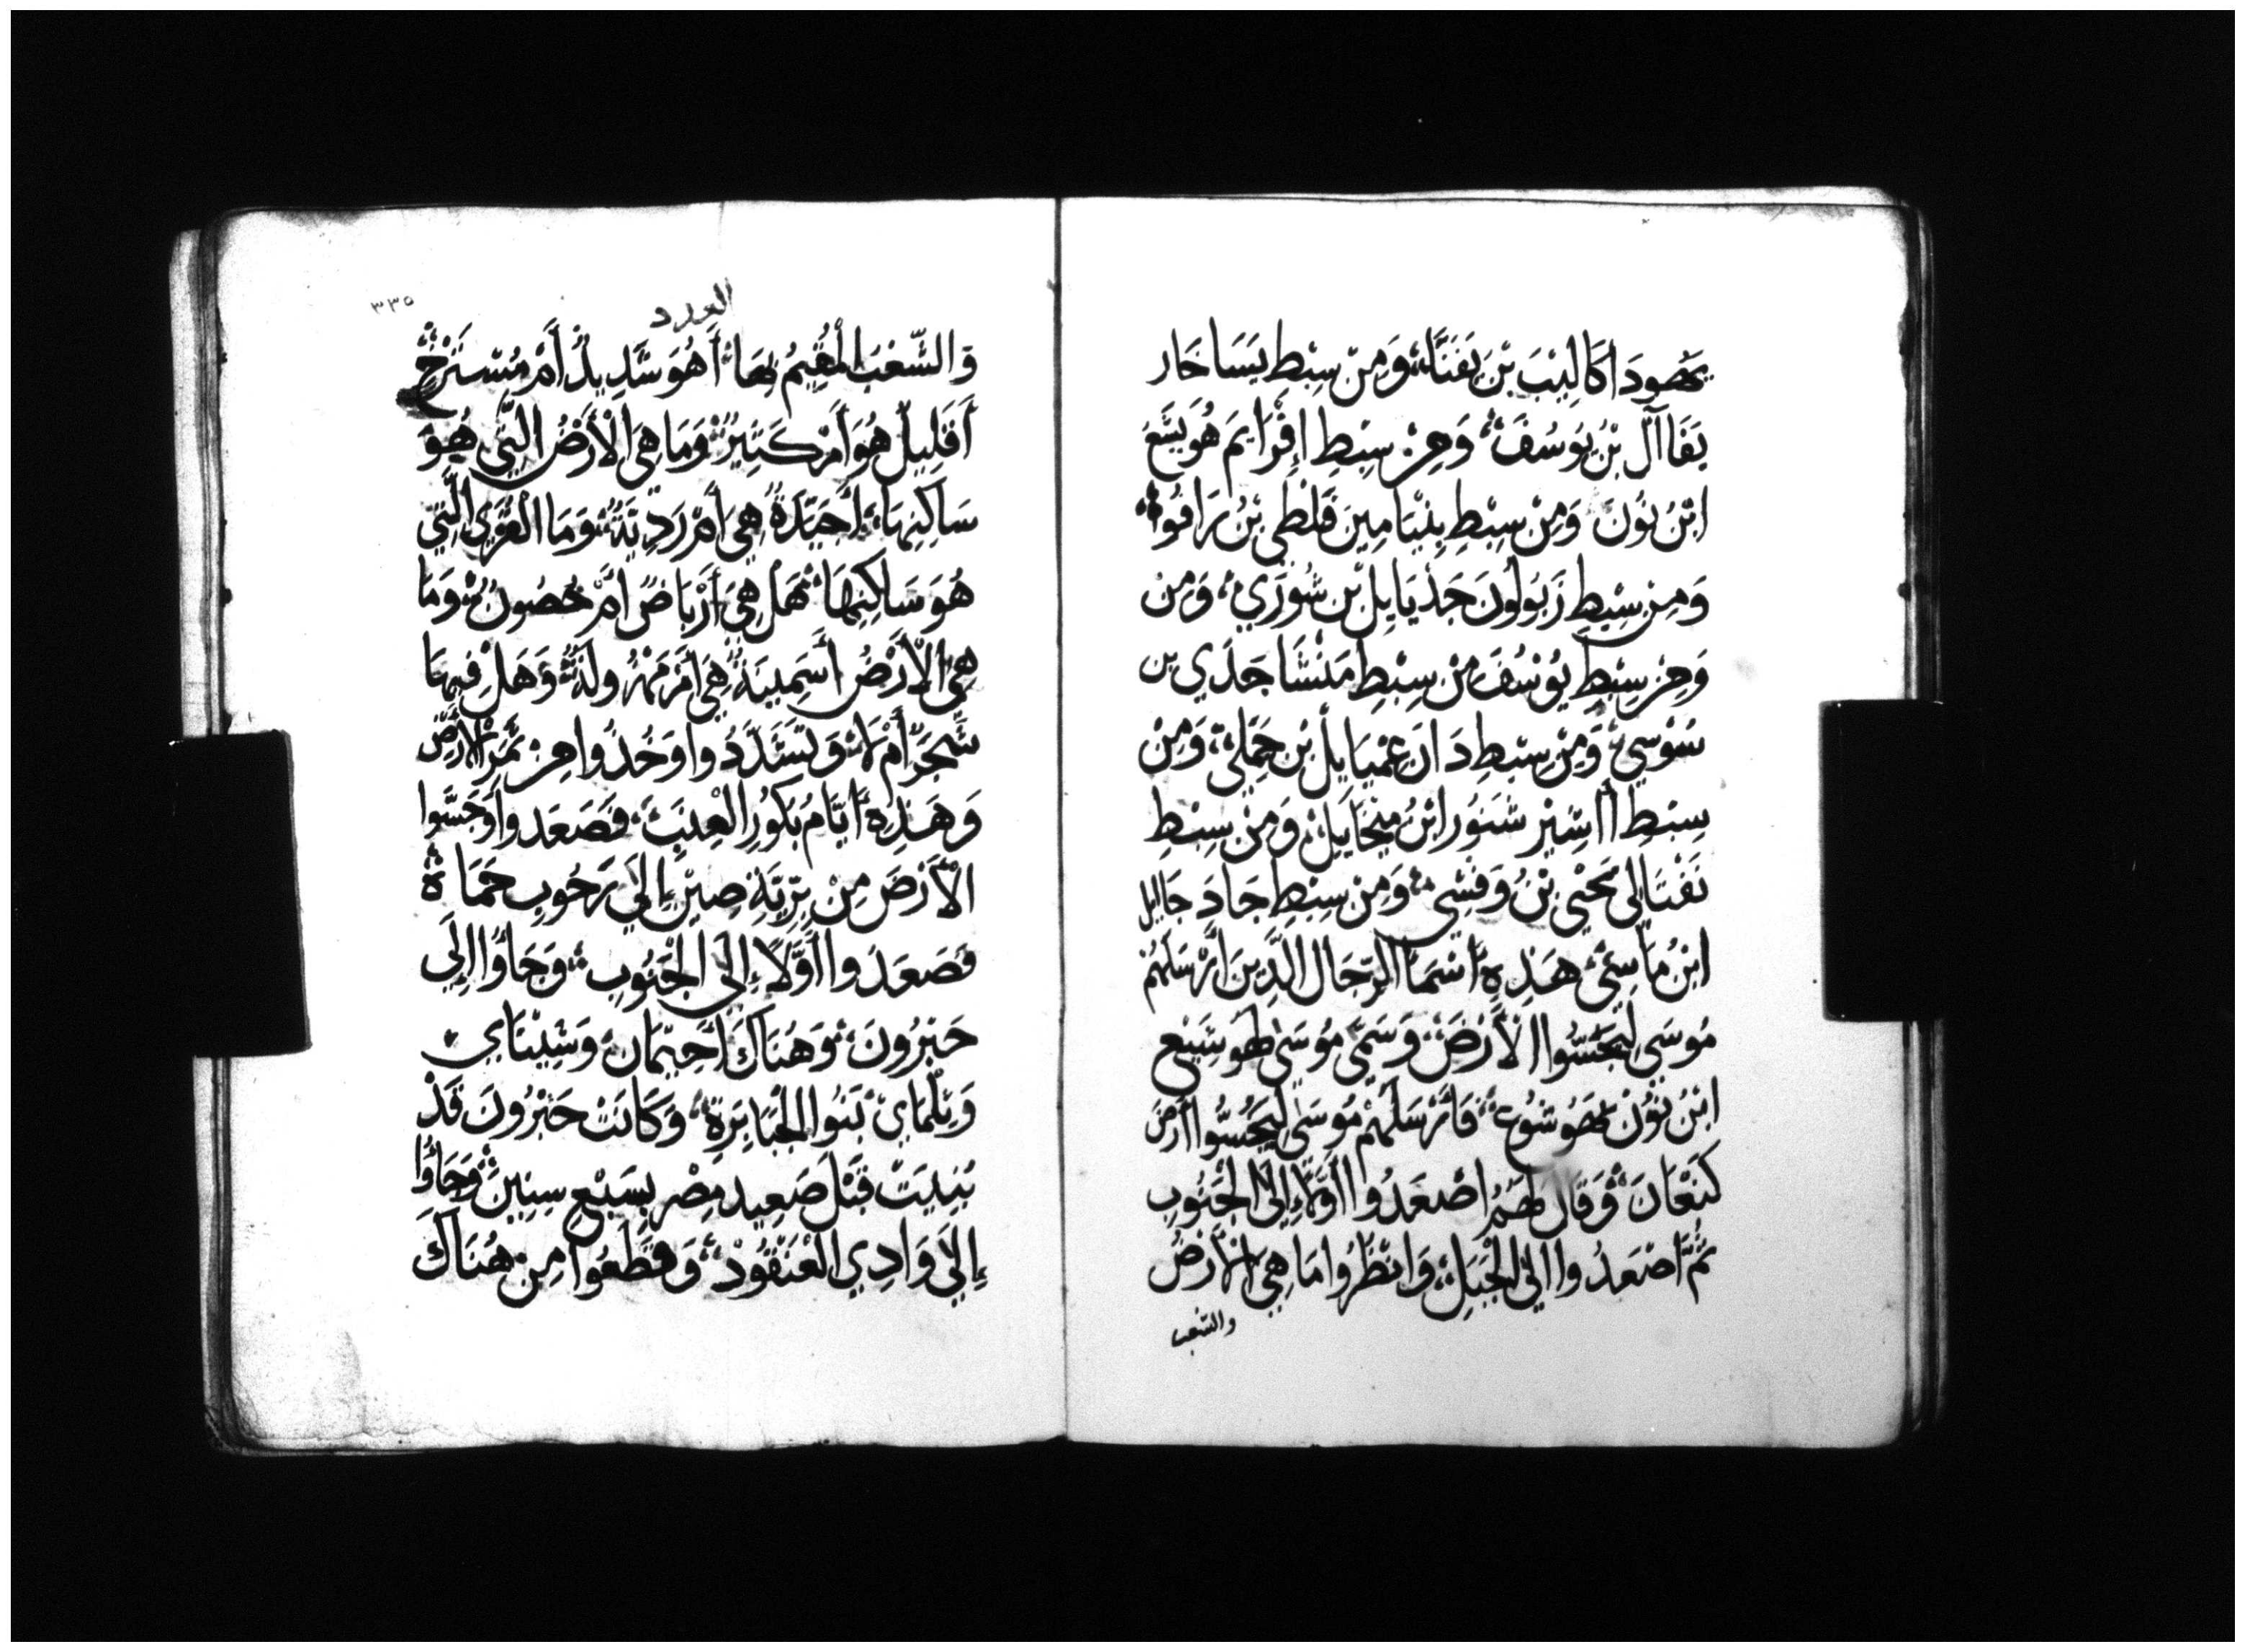 يَهُودَا كَالِيبَ بْنَ يَفَنَّا، وَمِنْ سِبْطِ يَسَاخَار
يَفَاآلَ بْنُ يُوسُفَ، وَمِنْ سِبْطِ إِفْرَايِمَ هُوَيَسَّعَ
ابْنُ نُونَ وَمِنْ سِبْطِ بِنْيَامِينَ فَلْطِي بْنُ رَافُوا
وَمِنْ سِبْطِ زَبُولُونَ جَدْيَايِلَ بْنِ شُورَي، وَمِنْ
وَمِنْ سِبْطِ يُوسُفَ مِنْ سِبْطِ مَنَشَّا جَدِي بن
سَوْسِي، وَمِنْ سِبْطِ دَانَ عِمْيَايِلَ بْنِ جَمَلِي، وَمِنْ
سِبْطِ أَاشِيْرِ شَنُورَ ابْنُ مِيْخَايِلَ، وَمِنْ سِبْطِ
نَفْتَالِي نَحْنِي بْنُ وَفْسِي، وَمِنْ سِبْطِ جَادَ جَاايل
ابْنُ مَاسِي، هَذِهِ اسْمَاالرِّجَال الَّذِينَ أَرْسَلَهُمْ
مُوسَى لِيَجُسُّواا لْأَرْضَ، وَسَمَّى مُوسَى هُوشَيْع
ابْنُ نُوْنَ يَهُوشُوع، فَأَرْسَلَهُمْ مُوسَى لِيَجُسُّوا أَرْضَ
كَنْعَانَ، وَقَالَ لَهُمُ اصْعَدُوا أَوَّلًا إِلَى الْجَنُوبِ
ثُمَّ اصْعَدُوا إِلَى الْجَبَلِ، وَانْظُرُوا مَا هِيَ الْأَرْضُ
والشعب
٣٣٥
العدد
وَالشَّعْبَ الْمُقِيمُ بِهَا، أَهُوَ شَدِيدٌ أَمْ مُسْتَرْخٍ
أَقَلِيلٌ هُوَ أَمْ كَثِيرٌ، وَمَا هِيَ الْأَرْضُ الَّتِي هُوَ
سَاكِنِهَا، أَجَيِّدَةٌ هِيَ أَمْ رَدِيَّةٌ، وَمَا الْقُرَى الَّتِي
هُوَ سَاكِنِهَا، هَلْ هِيَ أَرْبَاضٌ أَمْ حُصُونٌ، وَمَا
هِيَ الْأَرْضُ أَسَمِينَةٌ هِيَ أَمْ مَهْزُولَةٌ، وَهَلْ فِيهَا
شَجَرٌ أَمْ لَا، وَتَشَدَّدُوا وَخُذُوا مِنْ ثَمَرِ الْأَرْضِ
وَهَذِهِ أَيَّامُ بَكُورِ الْعِنَبِ، فَصَعَدُوا وَجَسُّوا
الْأَرْضَ مِنْ بَرِّيَّةِ صِيْنِ إِلَي رَحُوبِ حَمَاة
فَصَعَدُوا أَوَّلًا إِلَى الْجَنُوبِ، وَجَاؤُا إِلَي
حَبْرُونَ، وَهُنَاكَ أَحِيْمَانَ، وَشِيْشَاي
وَتِلْمَايْ بَنُوا الْجَبَابِرَةِ، وَكَانَتْ حَبْرُونَ قَدْ
بُنِيَتْ قَبْلَ صَعِيدِ مِصْرَ بِسَبْعِ سِنِينَ، وَجَاؤُا
إِلَي وَادِي الْعَنْقُودْ، وَقَطَعُوا مِنْ هُنَاكَ